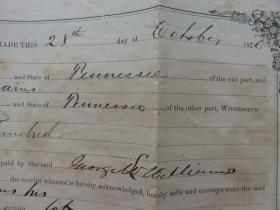 MADE THIS 28th day of October 187
and State of Tennessee of the one part, and
and State of Tennessee of the other part, WITNESSETH
Hundred
paid by the said George
the receipt whereof is hereby acknowledged, hereby sells and conveys unto the said
his
certain lot